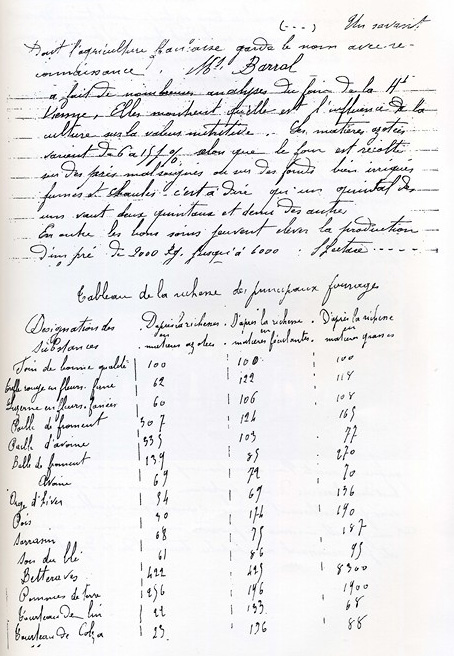 (---) Un savant
Dont l'agriculture française garde le nom avec re-
connaissance, Mr. Barral
a fait de nombreuses analyses du foin de la Hte
Vienne, Elles montrent quelle est l'influence de la
culture sur la valeur nutritive. Les matières azotées
varient de 6 a 15 % selon que le foin est récolté
sur des prés mal soignés ou sur des fonds bien irrigués
fumés et chaulés. c'est a dire qu'un quintal des
uns vaut deux quintaux et demi des autres
En outre les bons soins peuvent élever la production
d'un pré de 2000 Kg jusqu'à 6000 l'Hectare -----
Tableau de la richesse des principaux fourrages
Désignation des Substances Daprès la richesse en matières azotées D'après la richesse en matières féculantes D'après la richesse en matières grasses
Foin de bonne qualité 100 100 100
Trèfle rouge en fleurs. fané 62 122 118
Luzerne en fleurs. fanées 60 106 108
Paille de froment 307 126 165
Paille d'avoine 335 103 77
Balle de froment 139 85 270
Avoine 69 72 70
Orge d'hiver 54 69 136
Pois 30 174 190
Sarrasin 68 75 187
Son du blé 61 86 95
Betteraves 422 425 8300
Pommes de terre 256 146 1900
Tourteau de lin 22 133 68
Tourteau de Colza 23 136 88